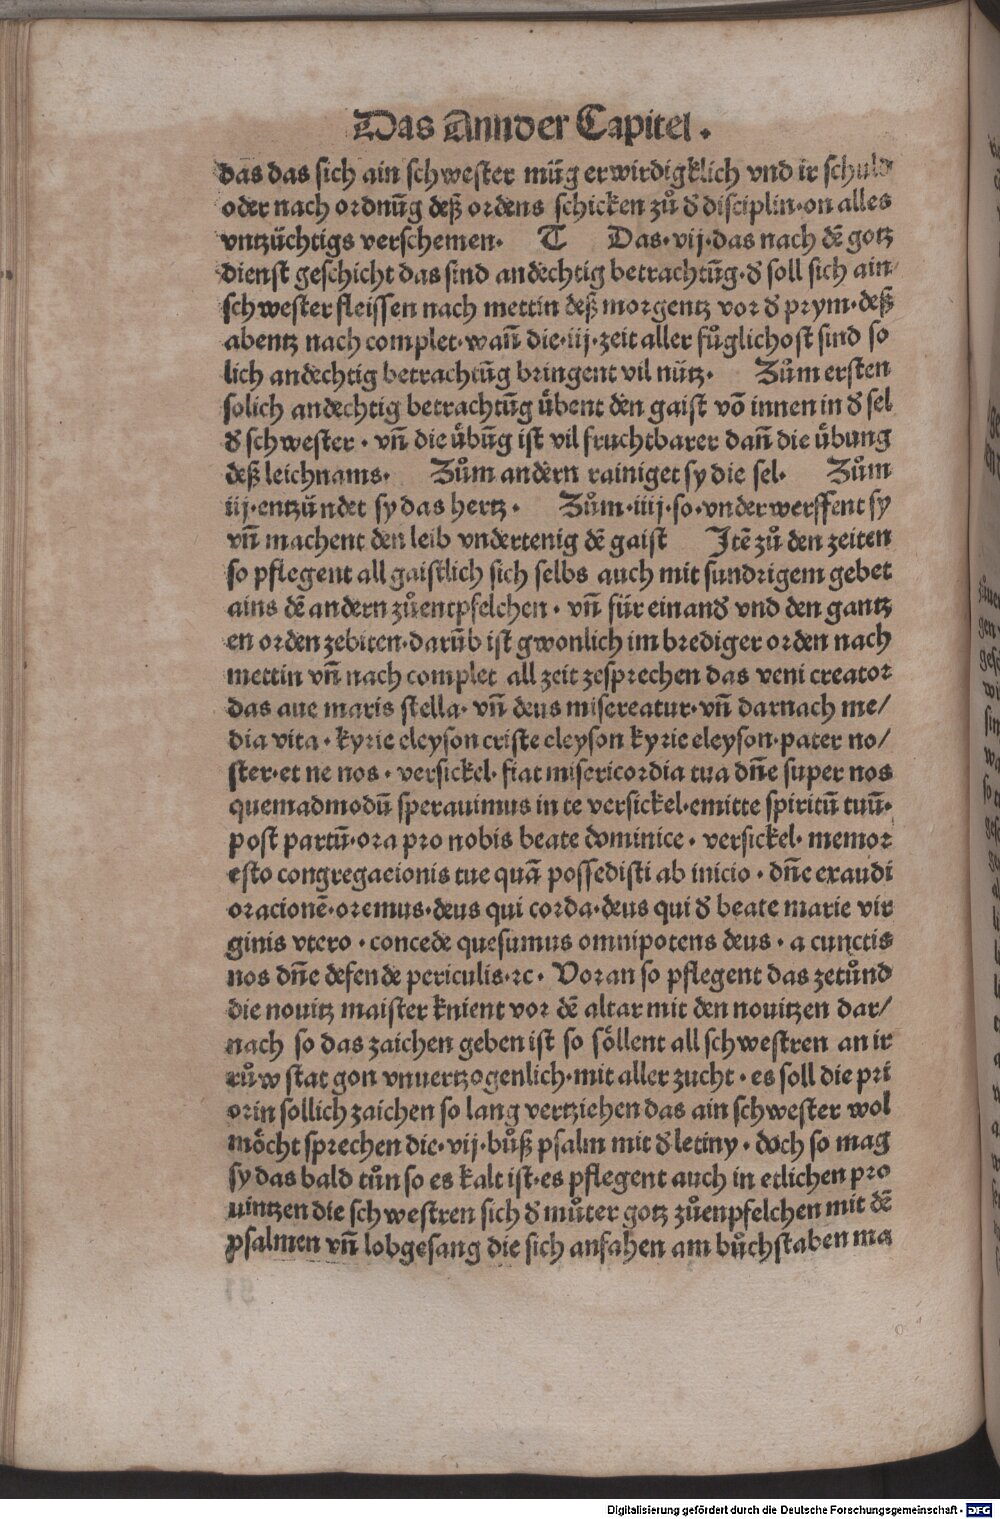 Das Annder Capitel .
das das sich ain schwester müg erwirdigklich vnd ir schuld
oder nach ordnūg deß ordens schicken zů d̕ disciplin·on alles
vntzüchtigs verschemen· T Das·vij·das nach dē gotz
dienst geschicht das sind andechtig betrachtūg·d̕ soll sich ain
schwester fleissen nach mettin deß morgentz vor d̕ prym·deß
abentz nach complet·wañ die·iij·zeit aller fůglichost sind so
lich andechtig betrachtūg bringent vil nütz· Zům ersten
solich andechtig betrachtūg übent den gaist vō innen in d̕ sel
d̕ schwester · vñ die übūg ist vil fruchtbarer dañ die übung
deß leichnams· Zům andern rainiget sy die sel· Zům
iij·entzündet sy das hertz · Zům·iiij·so·vnderwerffent sy
vñ machent den leib vndertenig dē gaist Jtē zů den zeiten
so pflegent all gaistlich sich selbs auch mit sundrigem gebet
ains dē andern zůentpfelchen · vñ für einand̕ vnd den gantz
en orden zebiten·darūb ist gwonlich im brediger orden nach
mettin vñ nach complet all zeit zesprechen das veni creator
das aue maris stella· vñ deus misereatur·vñ darnach me/
dia vita · kyrie eleyson criste eleyson kyrie eleyson·pater no/
ster·et ne nos · versickel· fiat misericordia tua dñe super nos
quemadmodū sperauimus in te versickel·emitte spiritū tuū·
post partū·ora pro nobis beate dominice · versickel· memor
esto congregaeionis tue quā possedisti ab inicio · dñe exaudi
oracionē·oremus·deus qui corda·deus qui d̕ beate marie vir
ginis vtero · concede quesumus omnipotens deus · a cunctis
nos dñe defende periculis·ꝛc· Voran so pflegent das zetůnd
die nouitz maister knient vor dē altar mit den nouitzen dar/
nach so das zaichen geben ist so söllent all schwestren an ir
růwstat gon vnuertzogenlich·mit aller zucht · es soll die pri
orin sollich zaichen so lang vertziehen das ain schwester wol
möcht sprechen die·vij·bůß psalm mit d̕ letiny · doch so mag
sy das bald tůn so es kalt ist·es pflegent auch in etlichen pro
uintzen die schwestren sich d̕ můter gotz zůenpfelchen mit dē
psalmen vñ lobgesang die sich anfahen am bůchstaben ma
Digitalisierung gefördert durch die Deutsche Forschungsgemeinschaft - DFG